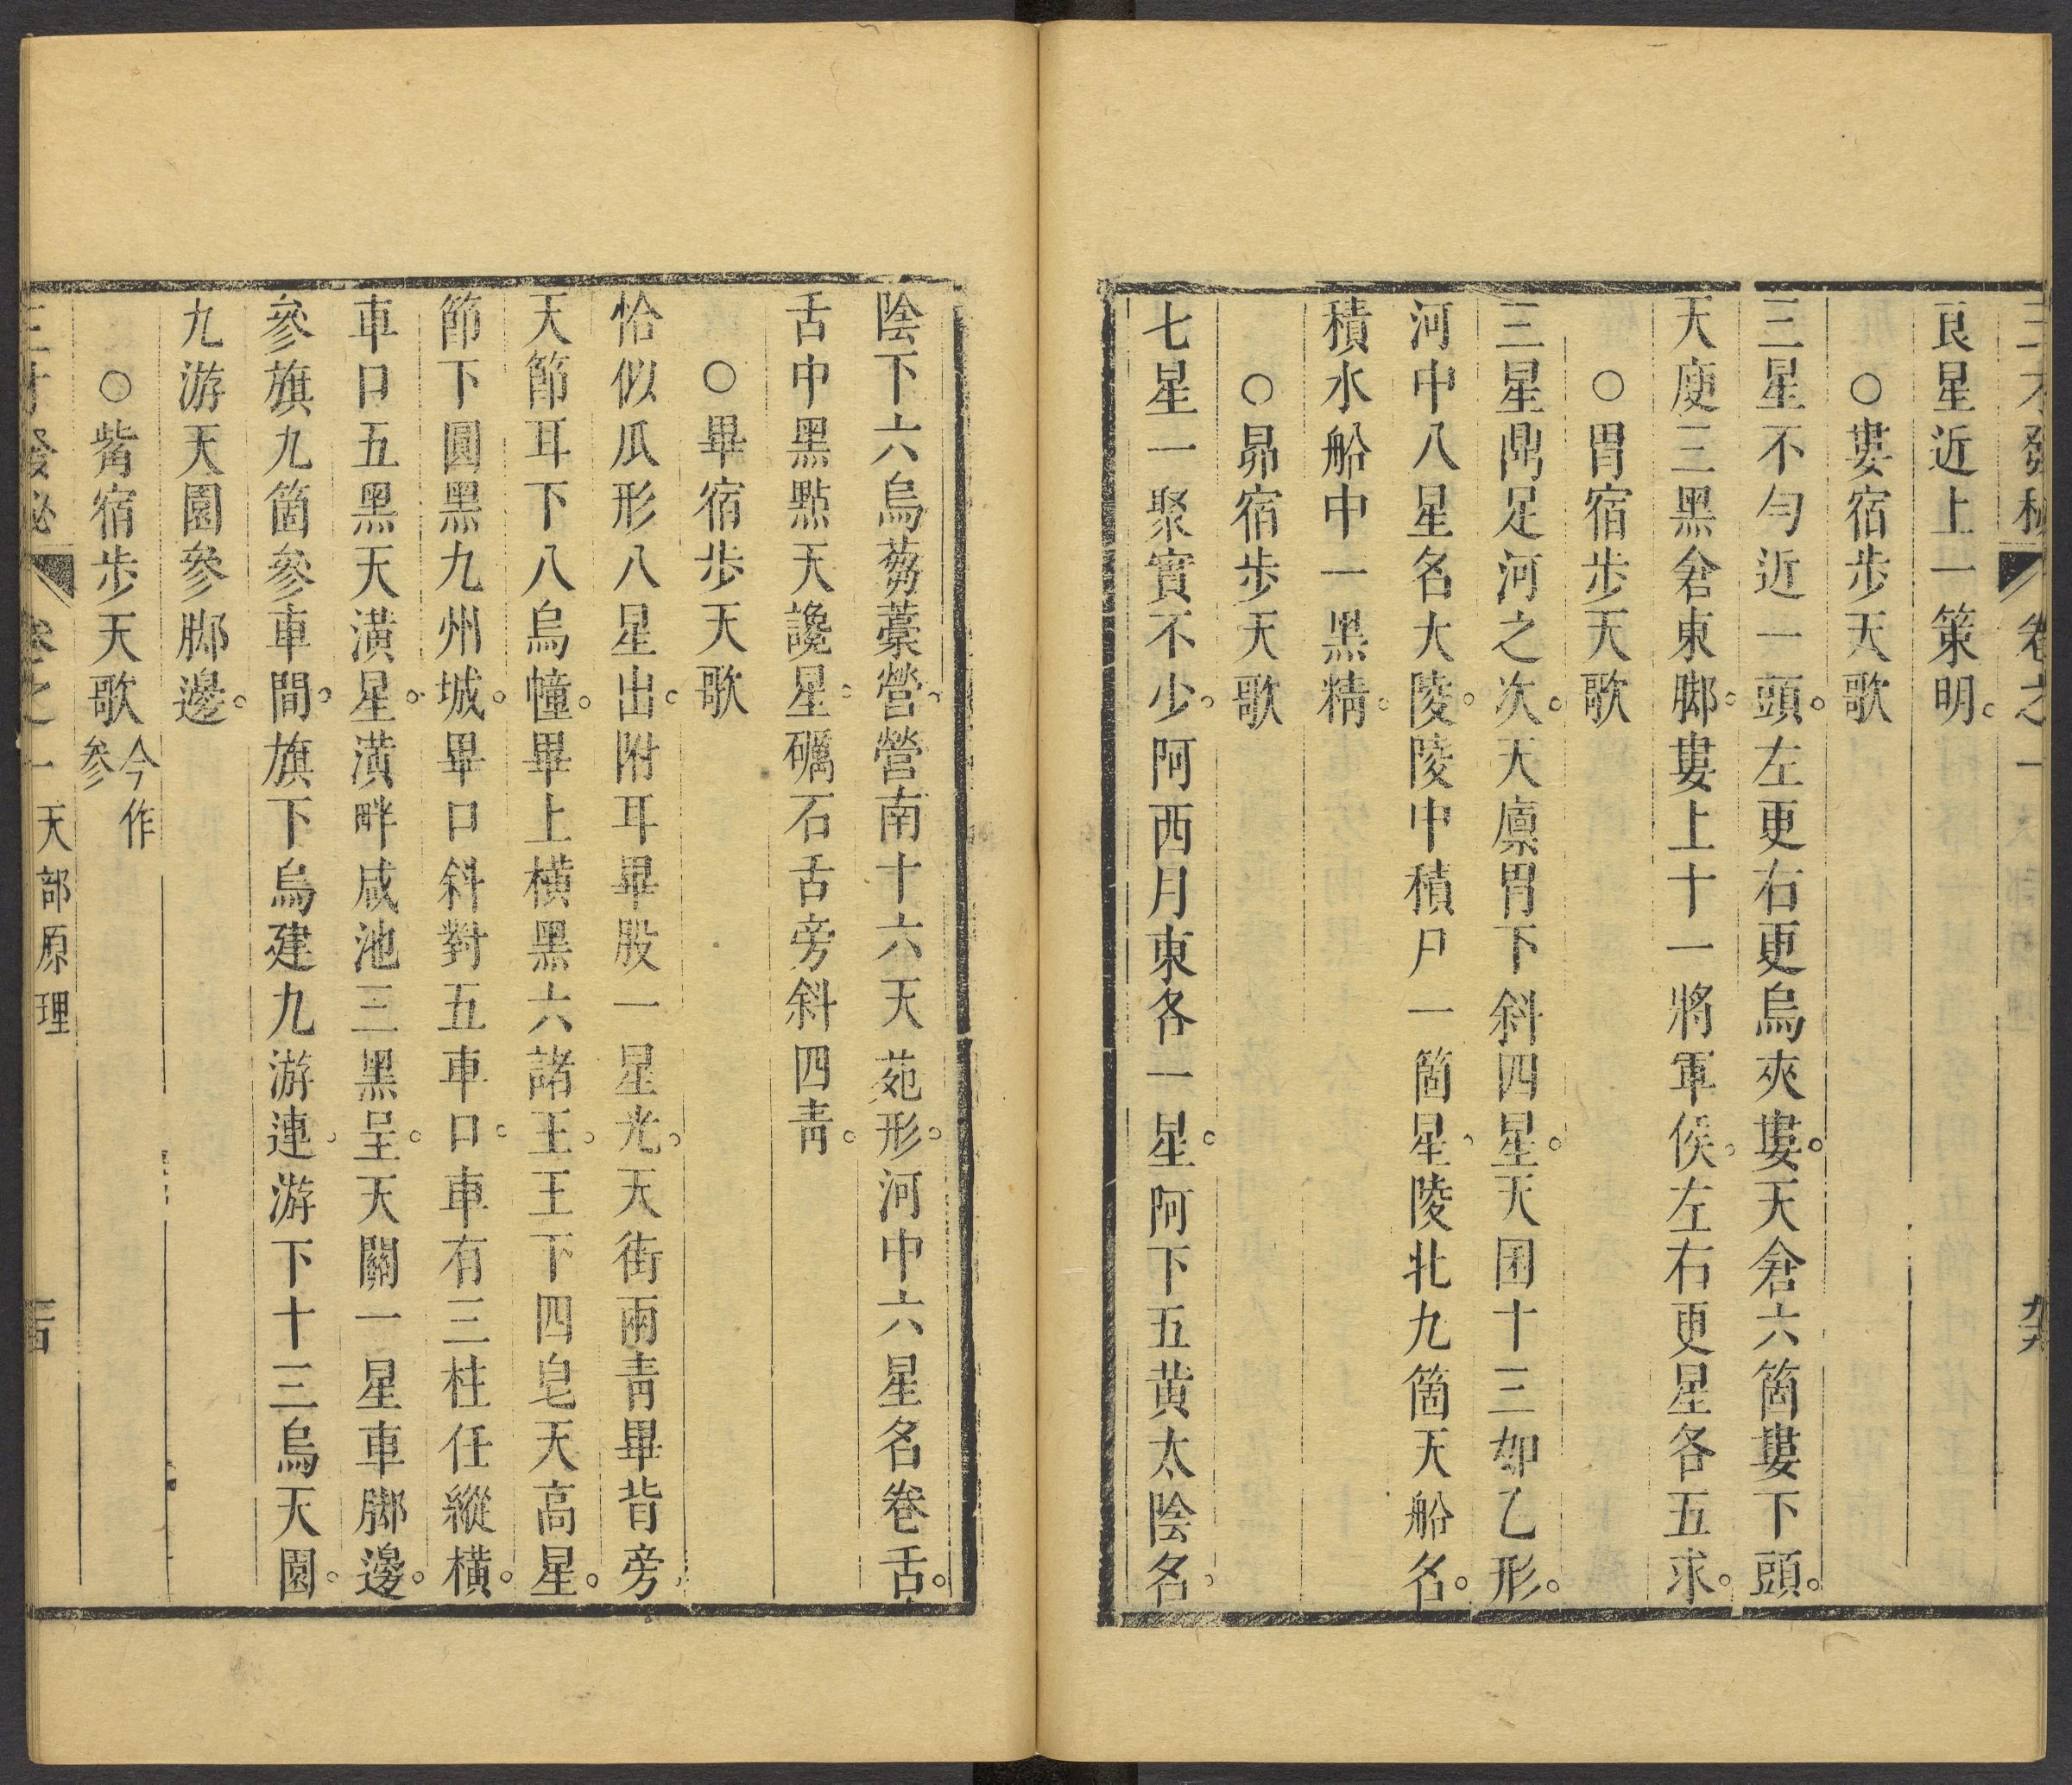 三才發秘 卷之一
良星近上一策明。
○婁宿步天歌
三星不勻近一頭。左更右更烏夾婁。天倉六箇婁下頭。
天庾三黑倉東脚。婁上十一將軍侯。左右更星各五求。
○胃宿步天歌
三星鼎足河之次。天廩胃下斜四星。天囷十三如乙形。
河中八星名大陵。陵中積尸一箇星。陵北九箇天船名。
積水船中一黑精。
○昴宿步天歌
七星一聚實不少。阿西月東各一星。阿下五黃太陰名。
陰下六烏蒭藁營。營南十六天苑形。河中六星名卷舌。
舌中黑點天讒星。礪石舌旁斜四靑。
○畢宿步天歌
恰似瓜形八星出。附耳畢股一星光。天街兩靑畢背旁。
天節耳下八烏幢。畢上橫黑六諸王。王下四皂天高星。
節下圓黑九州城。畢口斜對五車口。車有三柱任縱橫。
車口五黑天潢星。潢畔咸池三黑呈。天關一星車脚邊。
參旗九箇參車間。旗下烏建九游連。游下十三烏天園。
九游天園參脚邊。
○觜宿步天歌 今作參
三才發秘 卷之一 天部原理